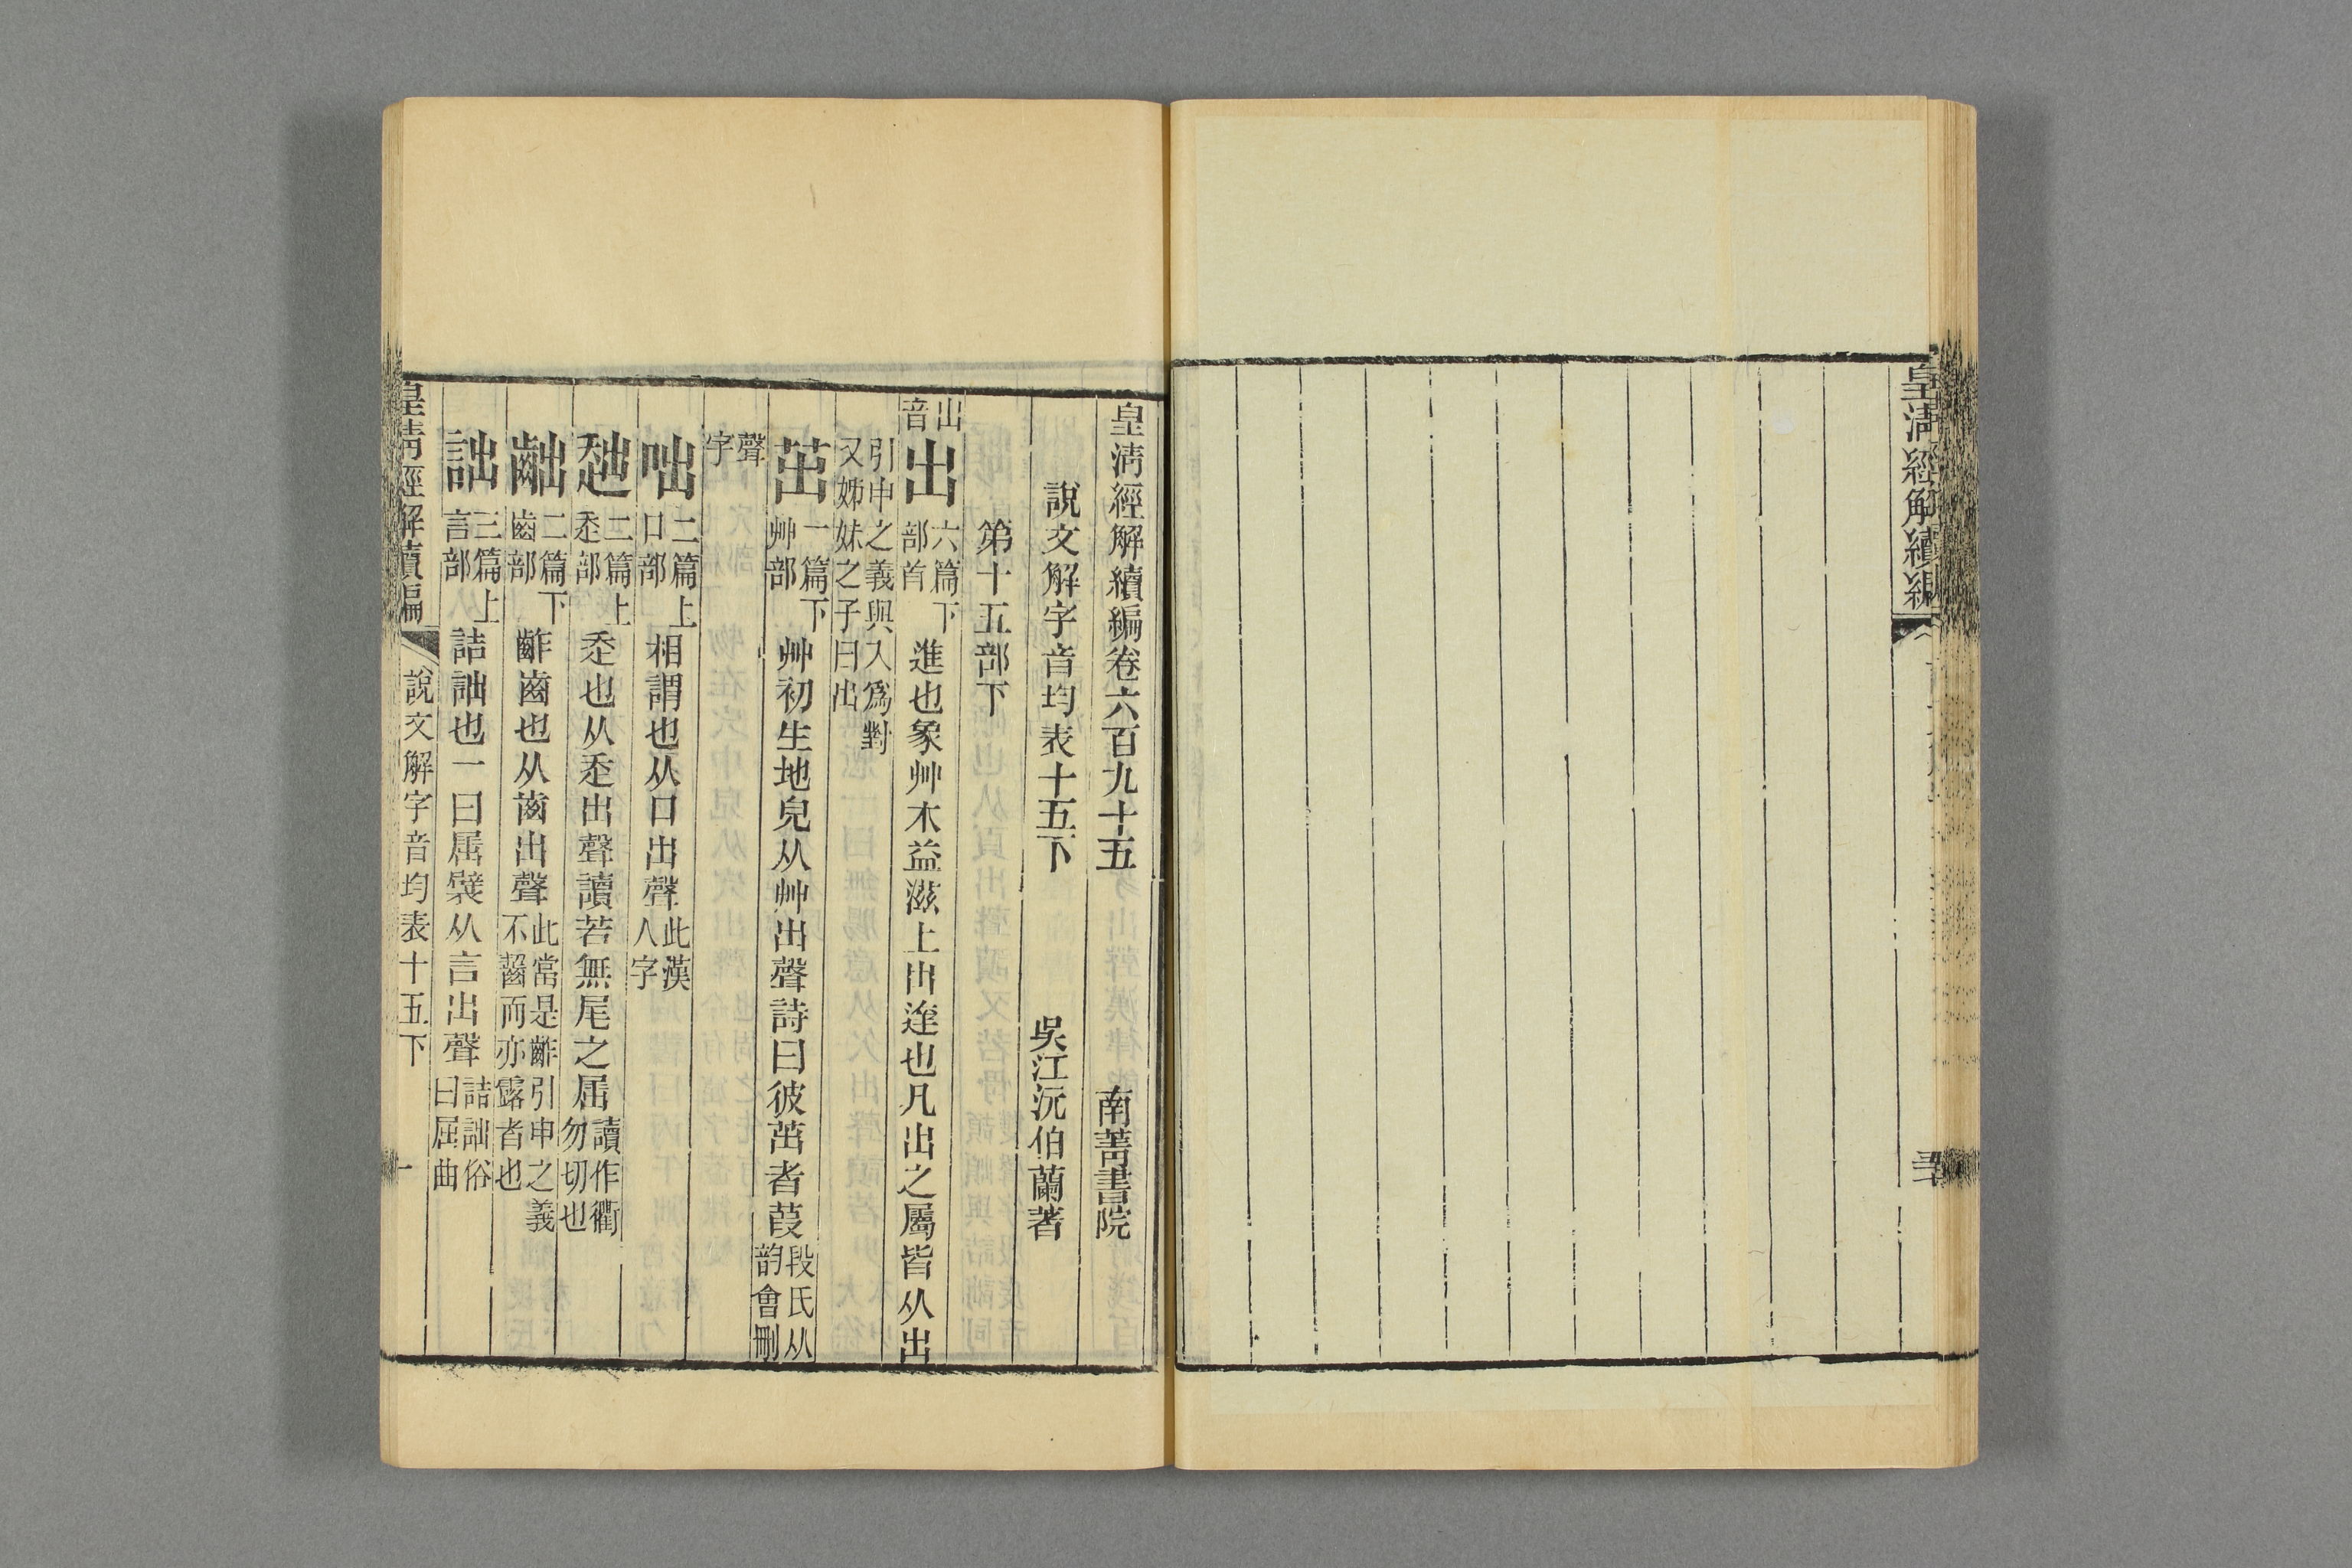 皇清經解續編
皇清經解續編卷六百九十五 南菁書院
說文解字音均表十五下 吳江沅伯蘭著
第十五部下
出音
出 六篇下部首 進也象艸木益滋上出達也凡出之屬皆从出
引申之義與入爲對又姊妹之子曰出
茁 一篇下艸部 艸初生地皃从艸出聲詩曰彼茁者葭 段氏从韵會刪
聲字
咄 二篇上口部 相謂也从口出聲 此漢人字
二篇上 也从 出聲讀若無尾之屈 讀作衢勿切也
齣 二篇下齒部 齚齒也从齒出聲 此當是齚引申之義不齧而亦露者也
詘 三篇上言部 詰詘也一曰屈襞从言出聲 詰詘俗曰屈曲
皇清經解續編 說文解字音均表十五下 一